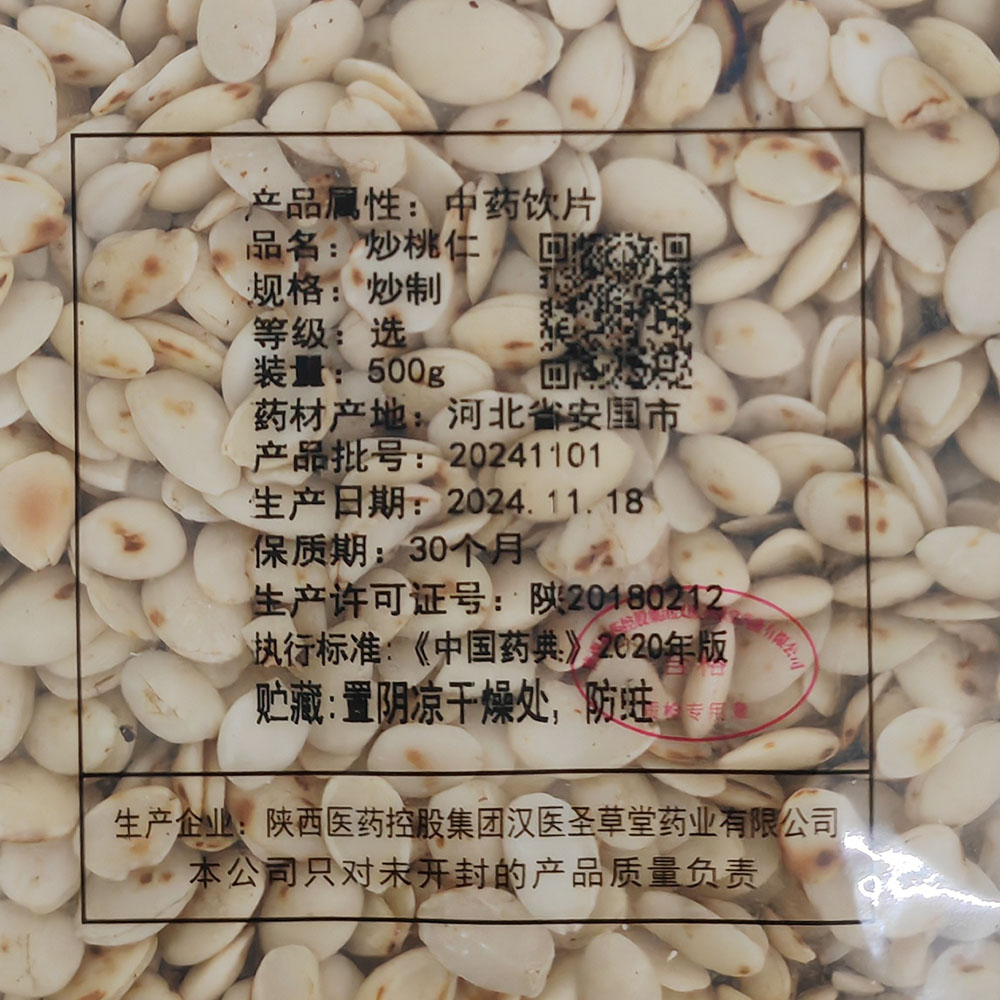 产品属性：中药饮片
品名：炒桃仁
规格：炒制
等级：选
装量：500g
药材产地：河北省安国市
产品批号：20241101
生产日期：2024.11.18
保质期：30个月
生产许可证号：陕20180212
执行标准:《中国药典》2020年版
贮藏:置阴凉干燥处，防蛀
生产企业：陕西医药控股集团汉医圣草堂药业有限公司
本公司只对未开封的产品质量负责